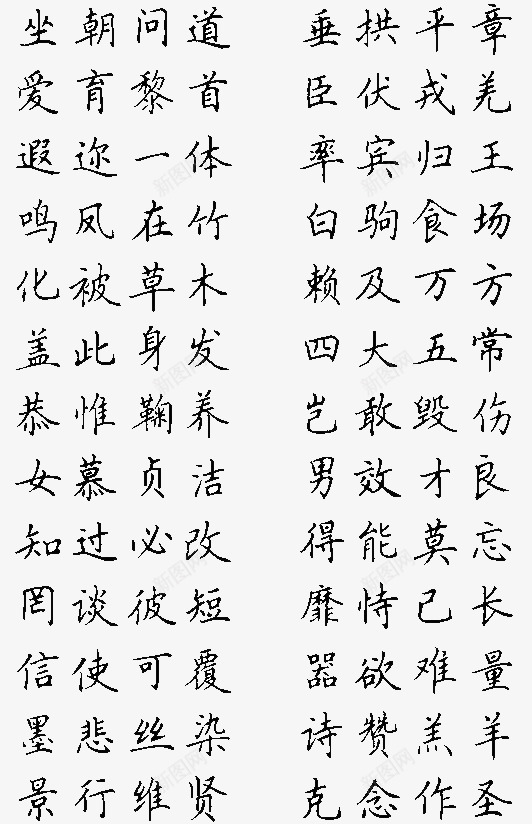 坐朝问道 垂拱平章
爱育黎首 臣伏戎羌
遐迩一体 率宾归王
鸣凤在竹 白驹食场
化被草木 赖及万方
盖此身发 四大五常
恭惟鞠养 岂敢毁伤
女慕贞洁 男效才良
知过必改 得能莫忘
罔谈彼短 靡恃己长
信使可覆 器欲难量
墨悲丝染 诗赞羔羊
景行维贤 克念作圣